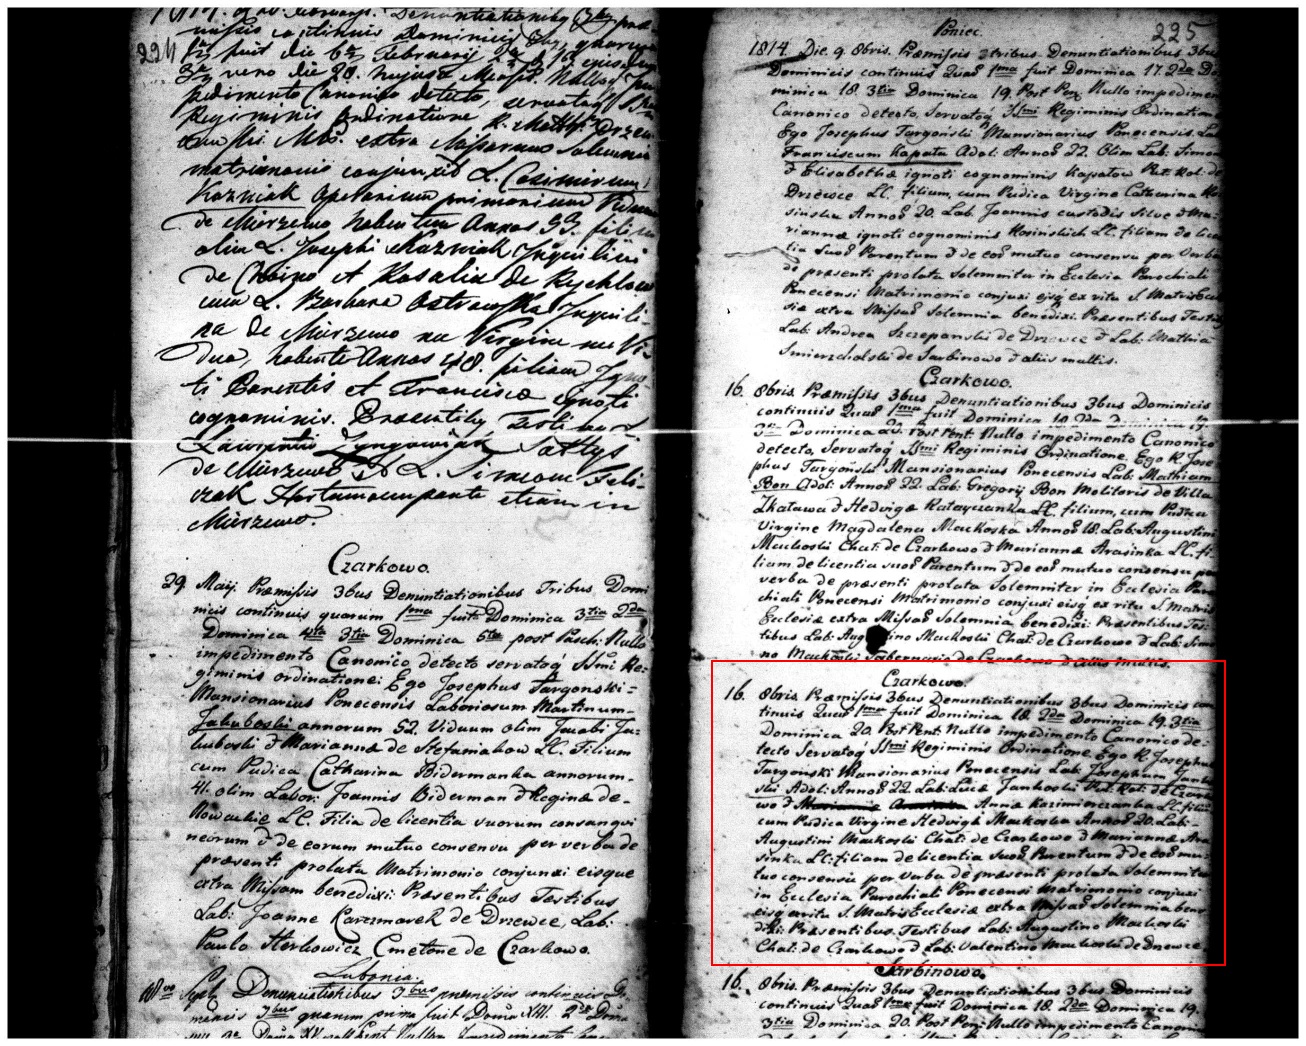 224
nissis continuis Dominicis
fuit die 6ta Februarij
vero die 20. hujus
pedimento Canonico detecto, servata
Regiminis Ordinatione
extra Missarum Solemnia
matrimonio conjunxit L. Casimirum
Kazniak
de Mürzewo habentem Annos 33. filium
olim L. Josephi Kazniak Inquilini
de Choino et Rosalia de Rychlow
cum L. Barbara Ostrowska Inquili-
na de Mürzewo nec Virgine nec Vi-
dua, habente Annos 48. filiam Igno-
ti Parentis et Francisca ignoti
cognominis. Praesentibus Testibus L.
Laurentio Sołtys
de Mürzewo & L. Simeone Feli-
czak etiam in
Mürzewo.
Czarkowo.
29. Maij. Præmissis 3bus Denuntiationibus Tribus Domi
nicis continuis quarum 1ma fuit Dominica 3tia 2da
Dominica 4ta 3tia Dominica 5ta post Pasch: Nullo
impedimento Canonico detecto servataq SSmi Re-
giminis ordinatione: Ego Josephus Targonski-
Mansionarius Ponecensis Laboriosum Martinum-
Jakuboski annorum 52. Viduum olim Jacobi Ja-
kuboski & Marianna de Stefaniakow LL. Filium
cum Pudica Catharina Bidermanka annorum-
41. olim Labor: Joannis Biderman & Regina de-
Nowackie LL. Filia de licentia suorum consangui
neorum & de eorum mutuo consensu per verba de
præsenti prolata Matrimonio conjunxi eisque
extra Missam benedixi: Præsentibus Testibus
Lab: Joanne Karczmarek de Drzewce, Lab:
Paulo Sterkowicz Cmetone de Czarkowo.
Lubonia.
Sept. Denuntiationibus 3bus præmissis continuis
Poniec.
225
1814. Die 9. 8bris. Præmissis tribus Denuntiationibus 3bus
Dominicis continuis Quarũ 1ma fuit Dominica 17. 2da Do
minica 18. 3tia Dominica 19. Post Pent. Nullo impedimen
Canonico detecto, Servatoq SSmi Regiminis Ordinatione
Ego Josephus Targoński Mansionarius Ponecensis. Lab
Franciscum Kapata Adol: Annor 22. Olim Lab: Simon
& Elisabethæ ignoti cognominis Kapatow Ret. Kol: de
Drzewce LL. filium, cum Pudica Virgine Catharina Ko
sinska Annor 20. Lab. Joannis custodis Silvæ & Ma-
riannæ ignoti cognominis Kosinskich LL. filiam de licen
tia Suor Parentum & de eor mutuo consensu per Verba
de præsenti prolata Solemniter in Ecclesia Parochiali
Ponecensi Matrimonio conjuxi eisq ex ritu S. Matris Eccle
siæ extra Missar Solemnia benedixi. Præsentibus Testib
Lab: Andrea Szczepanski de Drzewce & Lab: Mathia
Smierzchalski de Sarbinowo & aliis multis.
Czarkowo.
16. 8bris. Præmissis 3bus Denuntiationibus 3bus Dominicis
continuis Quar 1ma fuit Dominica 18. 2da Dominica 19.
3tia Dominica 20. Post Pent. Nullo impedimento Canonico
detecto, Servatoq SSmi Regiminis Ordinatione. Ego R Jose
phus Targoński Mansionarius Ponecensis Lab: Mathiam
Bon Adol: Annor 22. Lab: Gregorij Bon Molitoris de Villa
Zkatawa & Hedvige Ratayczanka LL. filium, cum Pudica
Virgine Magdalena Mackoska Annor 18. Lab: Augustini
Mackoski Chat: de Czarkowo & Mariannæ Arasinka LL. fi-
liam de licentia suor Parentum & de eor mutuo consensu per
verba de præsenti prolata Solemniter in Ecclesia Paro
chiali Ponecensi Matrimonio conjuxi eisq ex ritu S. Matris
Ecclesiæ extra Missar Solemnia benedixi. Præsentibus Tes-
tibus Lab: Augustino Mackoski Chat: de Czarkowo & Lab: Simo
no Mackoski Tabernario de Czarkowo & aliis multis.
Czarkowo.
16. 8bris. Præmissis 3bus Denuntiationibus 3bus Dominicis con
tinuis Quar 1ma fuit Dominica 18. 2da Dominica 19. 3tia
Dominica 20. Post Pent. Nullo impedimento Canonico de-
tecto Servatoq SSmi Regiminis Ordinatione Ego R Josephus
Targonski Mansionarius Ponecensis Lab: Josephum Jankos
ski Adol: Annor 22 Lab: Lucæ Jankoski Ret. Kol: de Czarko
wo & Anna Kazimierczanka LL. filiu
cum Pudica Virgine Hedvigh Mackoska Annor 20. Lab:
Augustini Mackoski Chat: de Czarkowo & Mariannæ Ara
sinka LL. filiam de licentia suor Parentum & de eor mu-
tuo consensu per verba de præsenti prolata Solemniter
in Ecclesia Parochiali Ponecensi Matrimonio conjuxi
eisq ex ritu S. Matris Ecclesiæ extra Missar Solemnia bene
dixi: Præsentibus Testibus Lab: Augustino Mackoski
Chat: de Czarkowo & Lab: Valentino Mackoski de Drzewce.
Sarbinowo.
16. 8bris. Præmissis 3bus Denuntiationibus 3bus Dominicis
continuis Quar 1ma fuit Dominica 18. 2da Dominica 19.
3tia Dominica 20. Post Pent. Nullo impedimento Canon